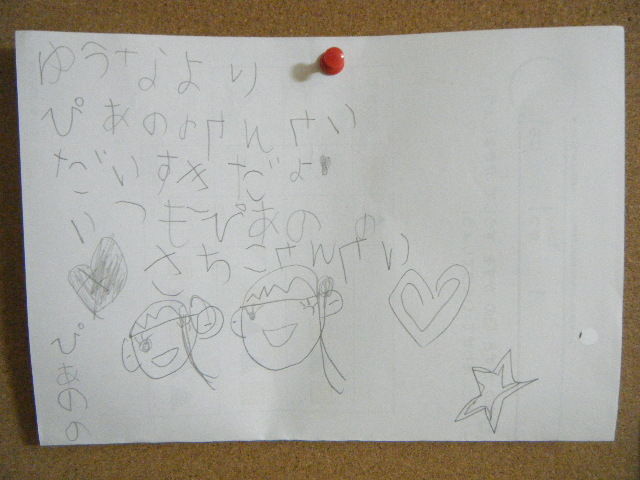 ゆうなより
ぴあのよせんせい
だいすきだよ
いつもぴあのの
さちこせんせい
ぴあのの